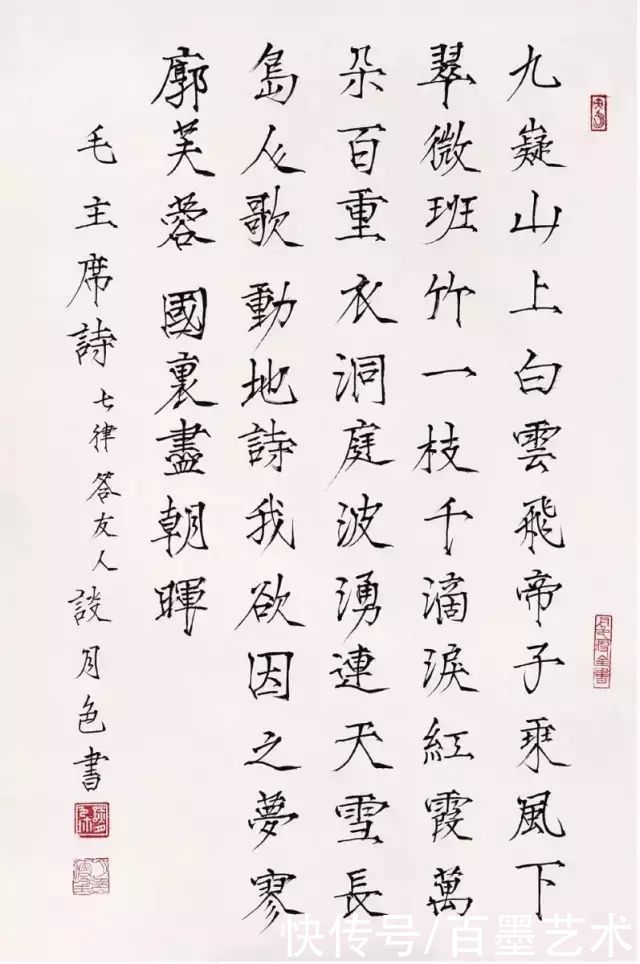 九嶷山上白雲飛帝子乘風下
翠微班竹一枝千滴淚紅霞萬
朵百重衣洞庭波湧連天雪長
島人歌動地詩我欲因之夢寥
廓芙蓉國裏盡朝暉
毛主席詩 七律答友人 談月色書
快传号/百墨艺术